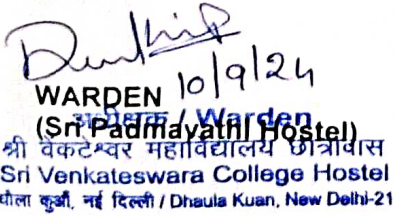 10/9/24
WARDEN
अधीक्षक / Warden
(Sri Padmavathi Hostel)
श्री वेंकटेश्वर महाविद्यालय छात्रावास
Sri Venkateswara College Hostel
धौला कुआँ, नई दिल्ली / Dhaula Kuan, New Delhi-21